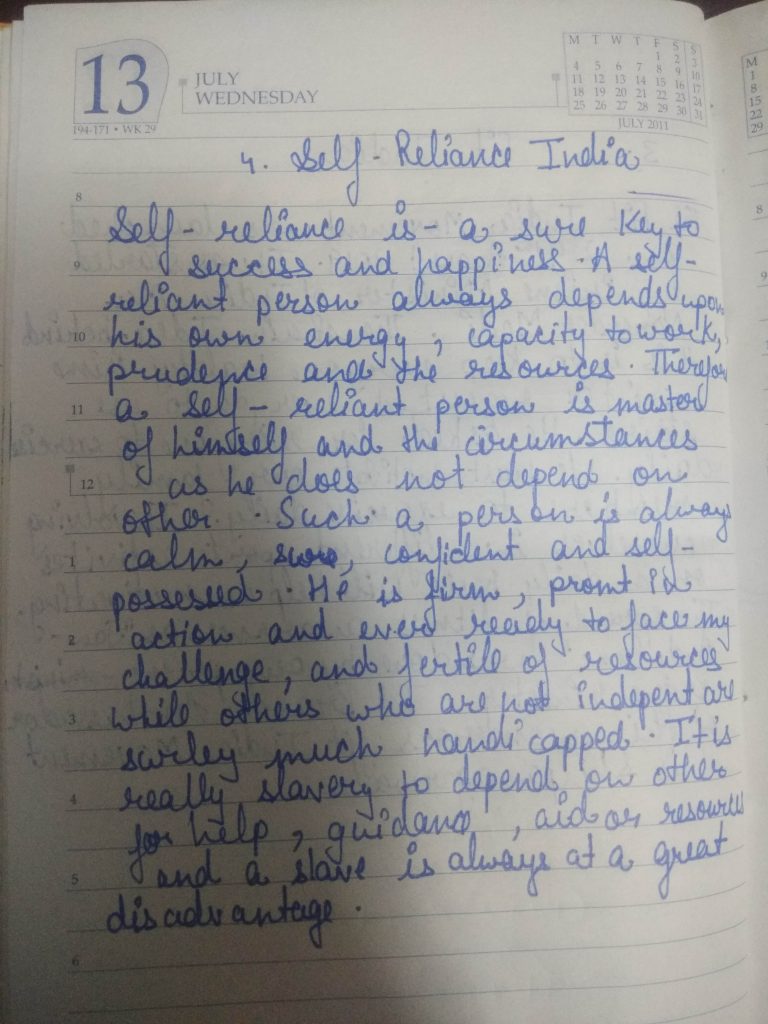 13
JULY
WEDNESDAY
194-171 • WK 29
M T W T F S S
1 2 3
4 5 6 7 8 9 10
11 12 13 14 15 16 17
18 19 20 21 22 23 24
25 26 27 28 29 30 31
JULY 2011
4. Self-Reliance India
8
Self-reliance is - a sure key to
9 success and happiness. A self-
reliant person always depends upon
10 his own energy, capacity to work,
prudence and the resources. Therefore
11 a self-reliant person is master
of himself and the circumstances
12 as he does not depend on
other. Such a person is always
1 calm, sure, confident and self-
possessed. He is firm, promt in
2 action and ever ready to face my
challenge, and fertile of resources
3 while others who are not indepent are
surley much handicapped. It is
4 really slavery to depend on other
for help, guidanc, aid or resources
5 and a slave is always at a great
disadvantage.
6
M
1
8
15
22
29
8
9